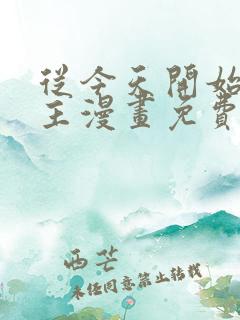 從今天開始
王漫畫免費
西芒
未经同意禁止转载